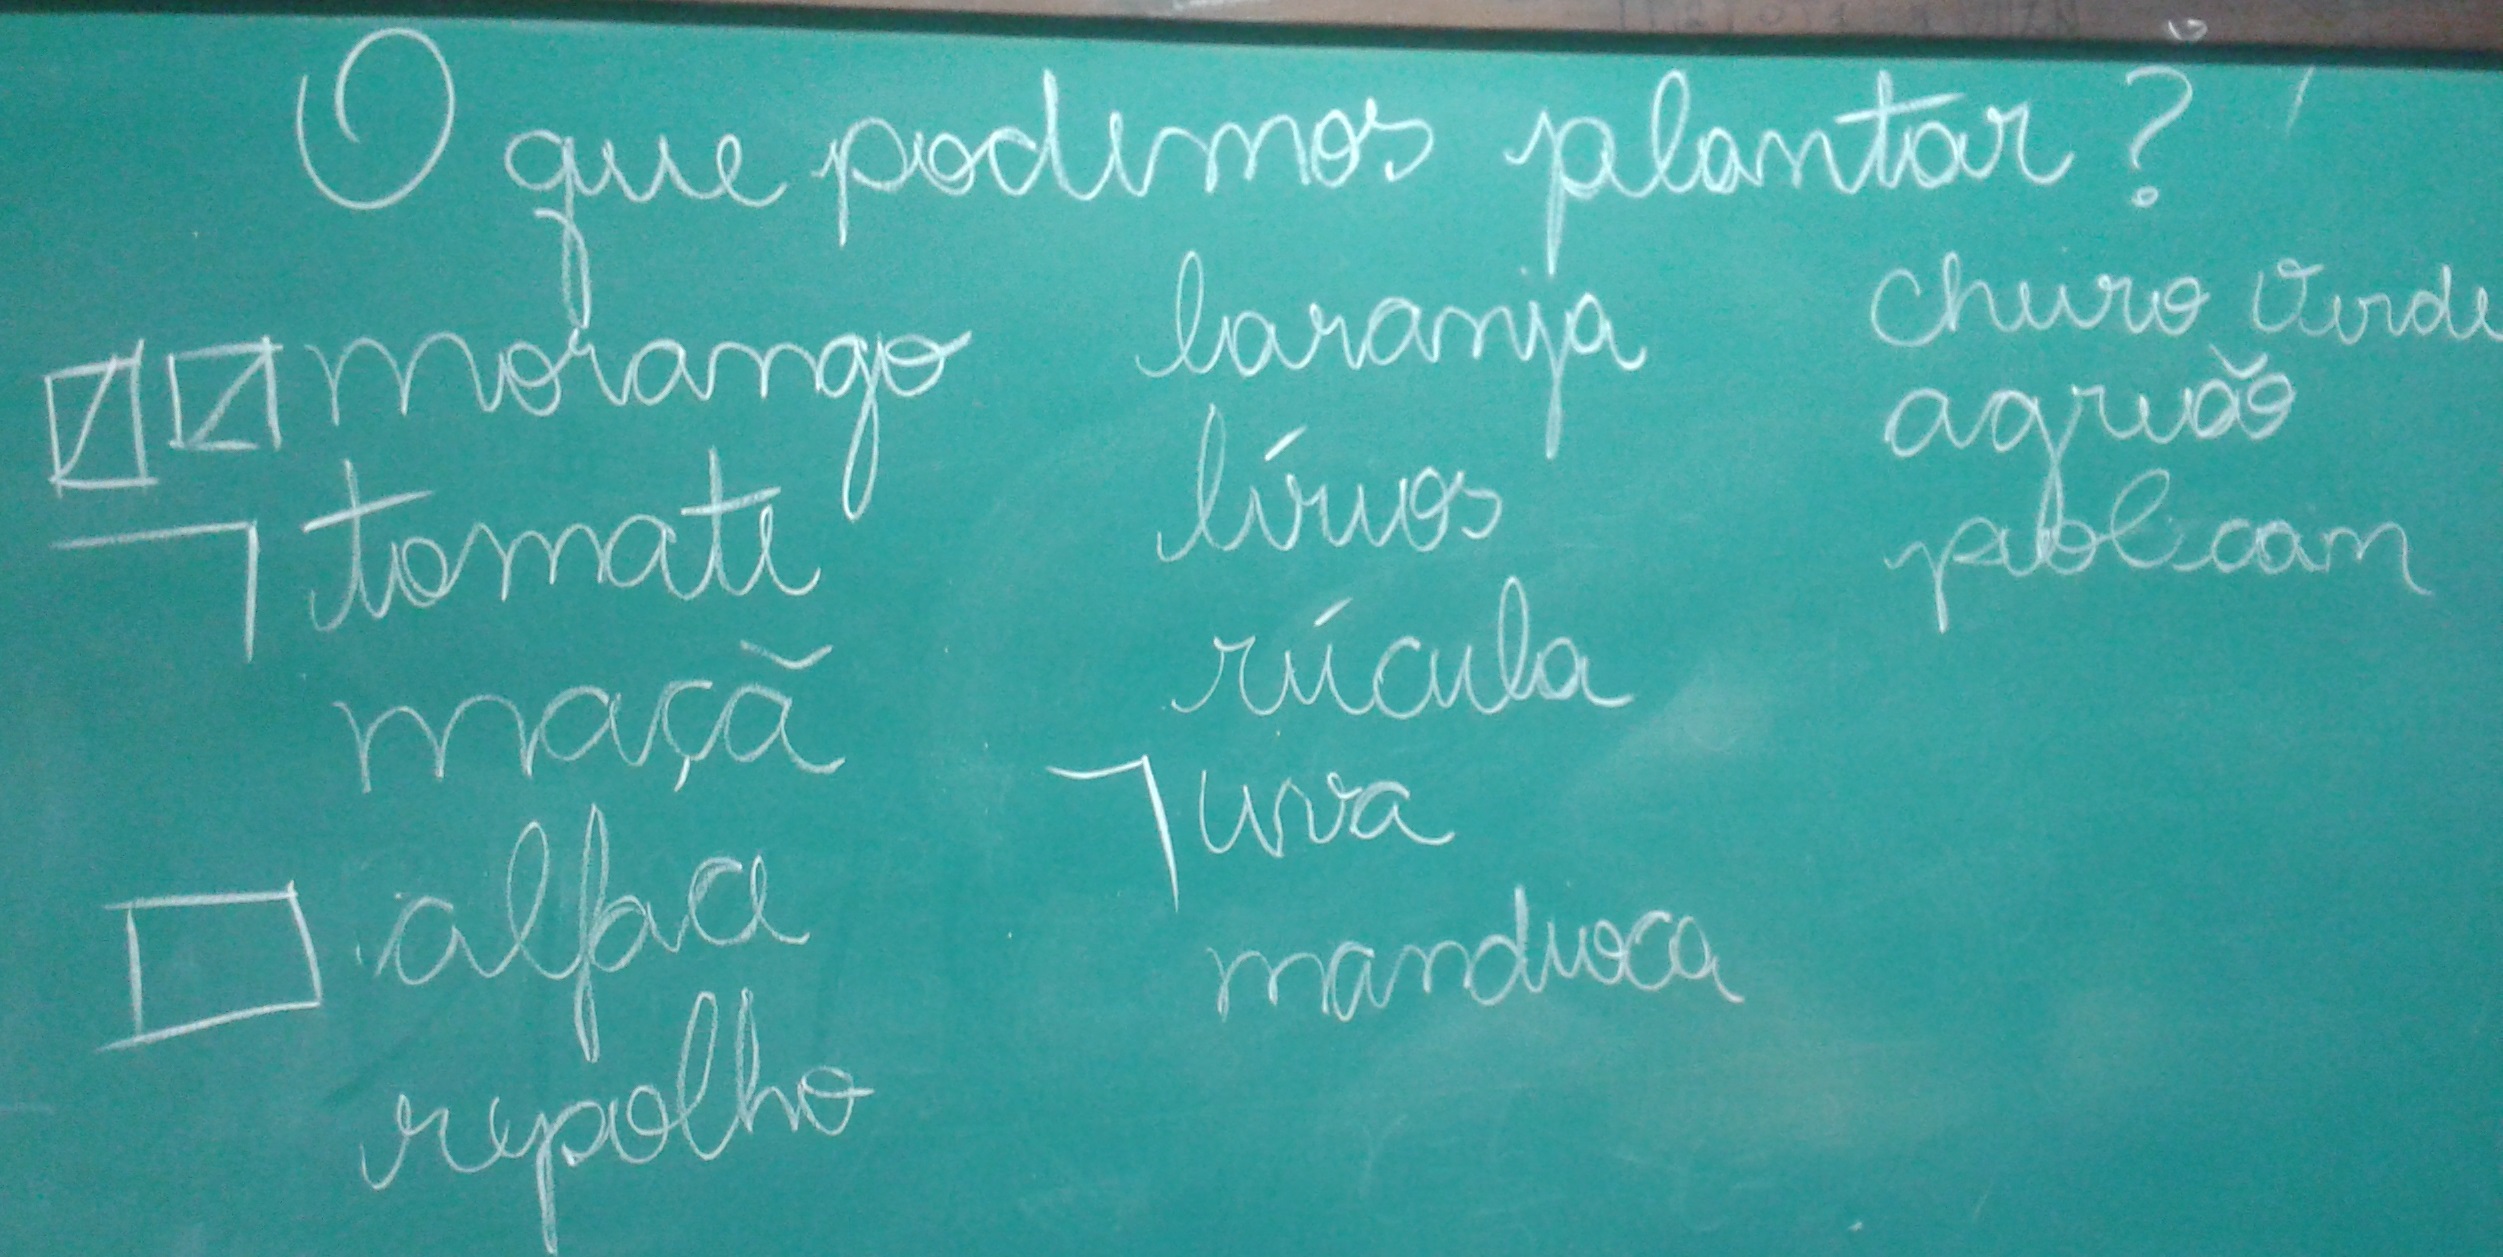 O que podemos plantar?
morango
tomate
maçã
alface
repolho
laranja
lírios
rúcula
uva
mandioca
cheiro verde
agrião